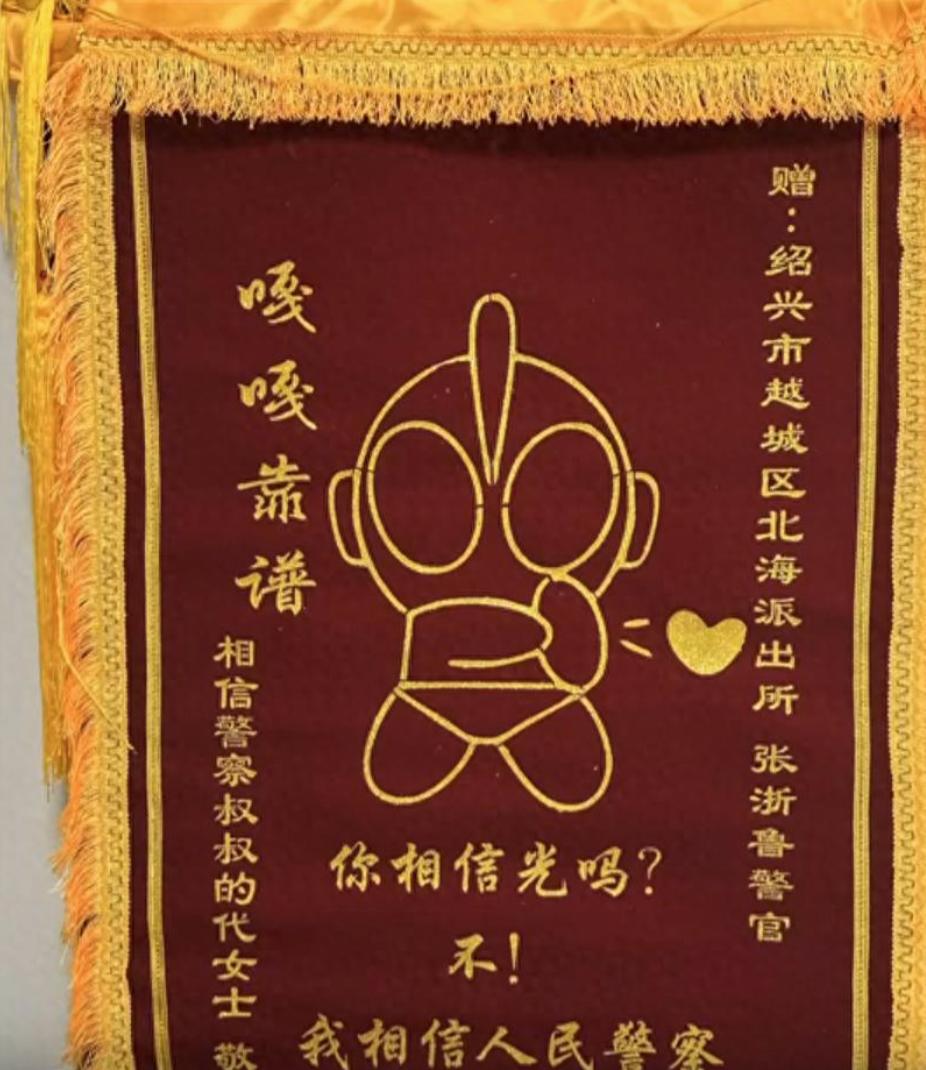 赠：绍兴市越城区北海派出所 张浙鲁警官
你相信光吗？
不！
我相信人民警察
嘎嘎靠谱
相信警察叔叔的代女士 敬